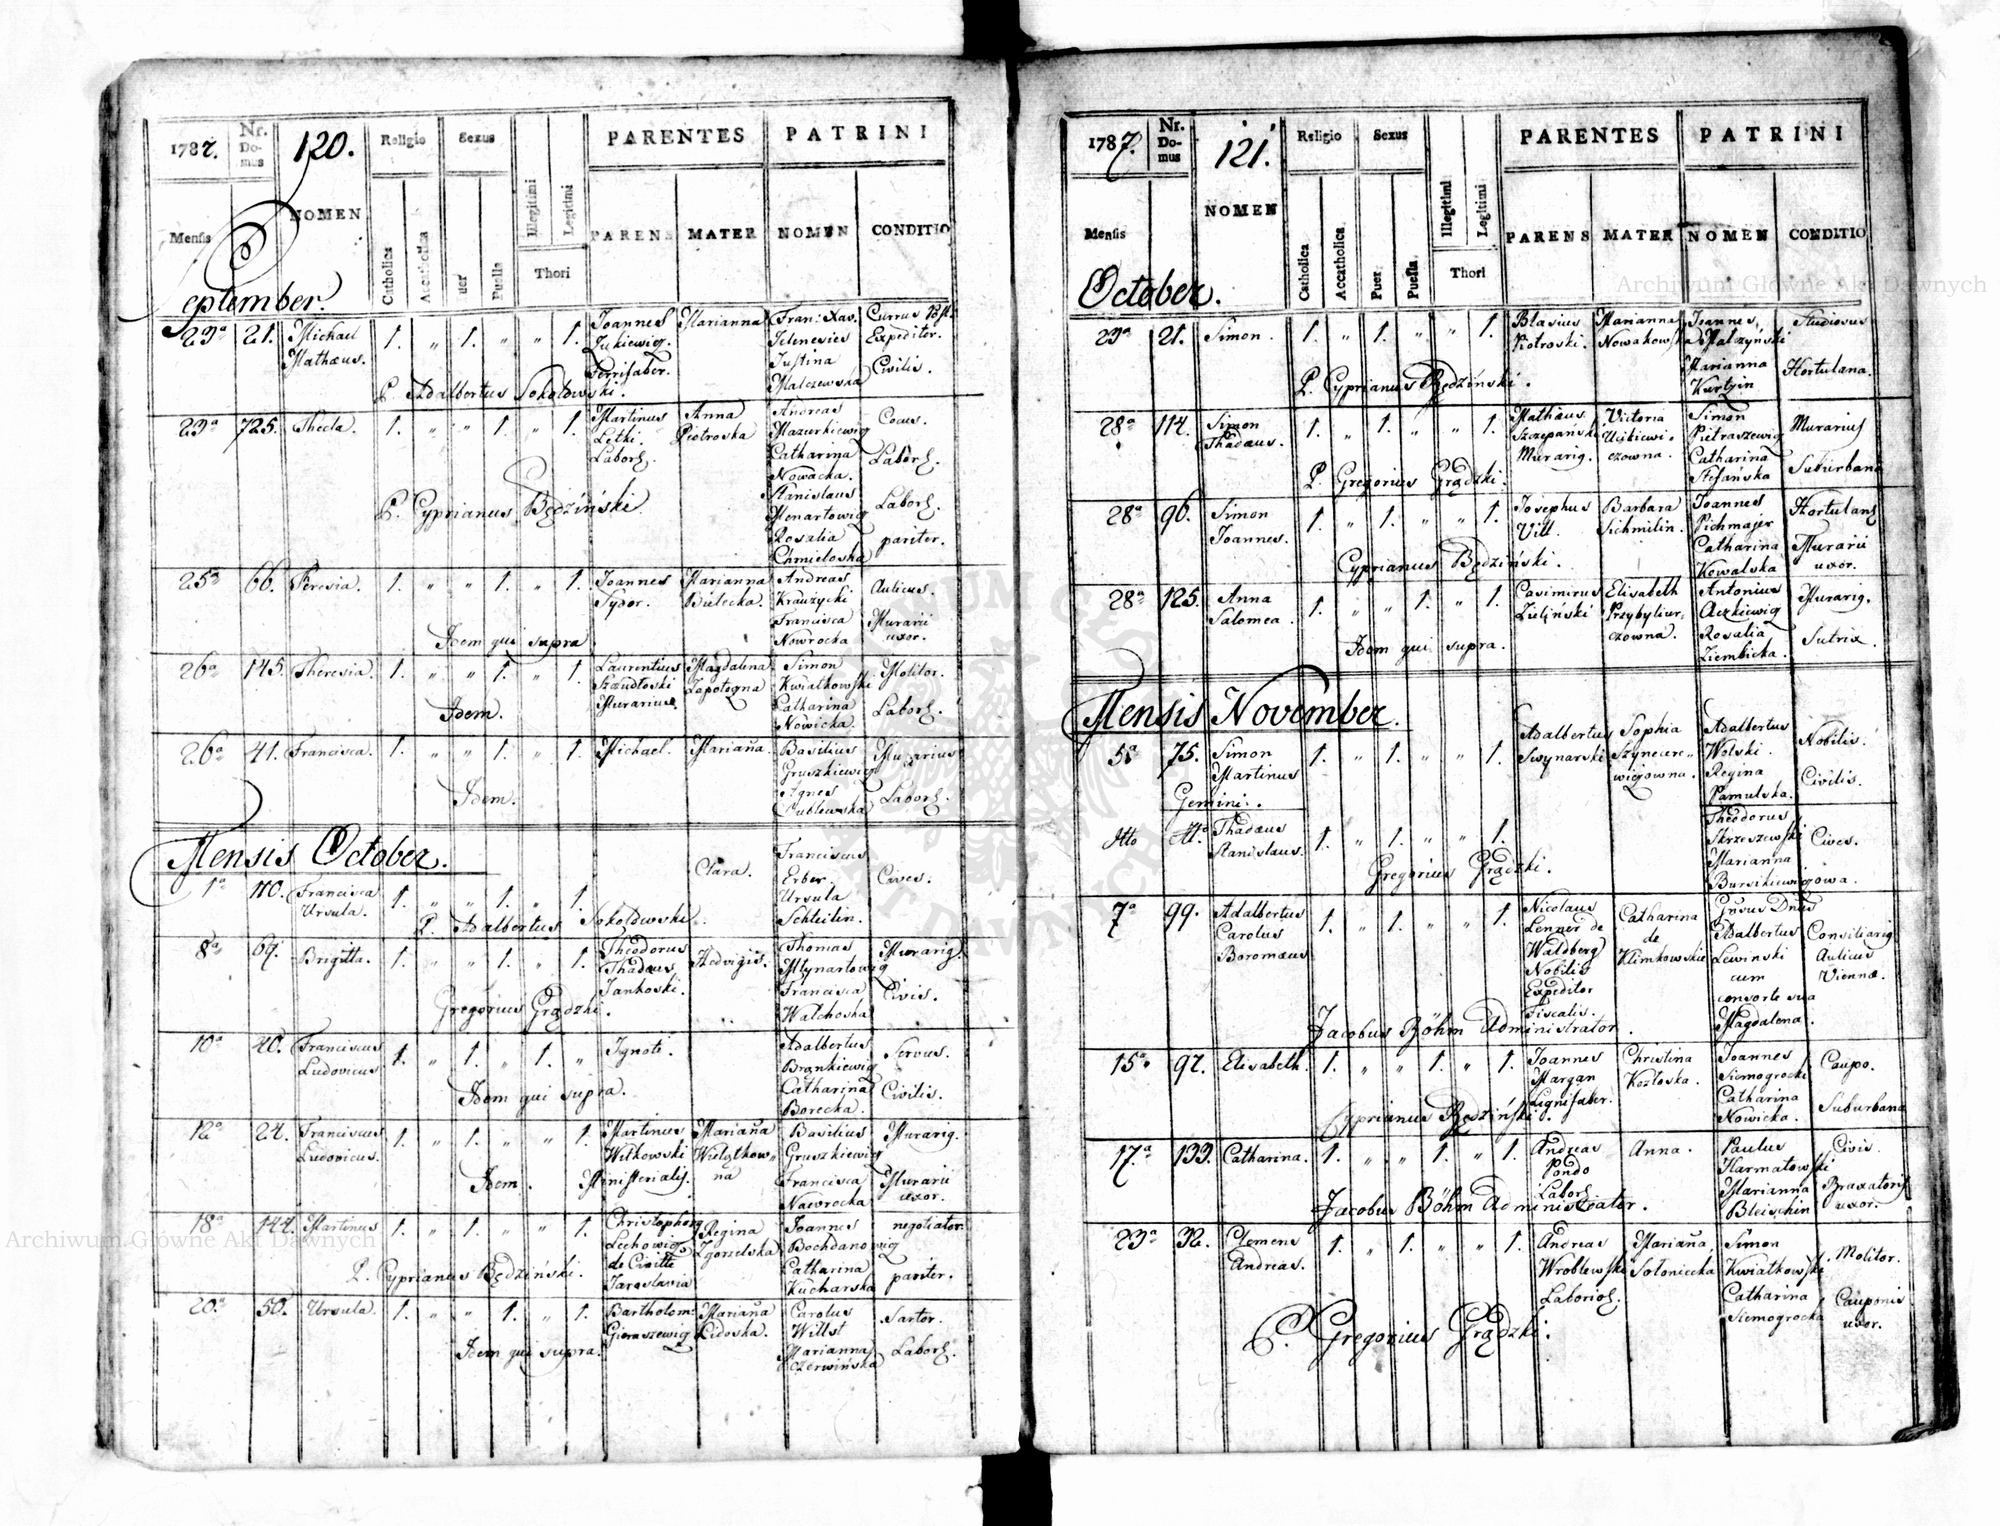 1787. Nr. Domus 120. Religio Sexus PARENTES PATRINI
Mensis NOMEN Catholica Accatholica Puer Puella Illegitimi Legitimi Thori PARENS MATER NOMEN CONDITIO
September.
23a 21. Michael Mathæus. 1. " 1. " " 1. Joannes Ferrifaber. Marianna Fran: Xav. Justina Malczewska Expeditor. Civilis.
P. Adalbertus Sokołowski.
23a 725. Thecla. 1. " " 1. " 1. Martinus Letki. Anna Piotroska Andreas Mazurkiewicz Catharina Nowacka. Stanislaus Menartowicz Rosalia Chmieloska Cocus. pariter.
P. Cyprianus Będziński
25a 66. Teresia. 1. " " 1. " 1. Joannes Sydor. Marianna Bielecka. Andreas Krauzycki Francisca Nowrocka Aulicus. Murarii uxor.
Idem qui supra
26a 145. Theresia. 1. " " 1. " 1. Laurentius Murarius. Magdalena Simon Kwiatkowski Catharina Nowicka. Molitor.
Idem.
26a 41. Francisca. 1. " " 1. " 1. Michael. Mariana. Basilius Gruszkiewicz Agnes Murarius
Idem.
Mensis October.
1a 110. Francisca Ursula. 1. " " 1. " 1. Clara. Franciscus Erber. Ursula Schleilin. Cives.
P. Adalbertus Sokołowski.
8a 69. Brigitta. 1. " " 1. " 1. Theodorus Thadæus Jankoski. Hedvigis. Thomas Młynartowicz Francisca Walchoska Civis.
Gregorius Grądzki.
10a 40. Franciscus Ludovicus 1. " 1. " 1. " Ignoti. Adalbertus Brankiewicz Catharina Borecka. Servus. Civilis.
Idem qui supra.
12a 24. Franciscus Ludovicus. 1. " 1. " " 1. Martinus Witkowski Mariana Basilius Gruszkiewicz Francisca Nawrocka Murarii uxor.
Idem. Ministerialis.
18a 144. Martinus 1. " 1. " " 1. Lechowicz de Civitte Jaroslavia Regina Zgorzelska Joannes Bochdanowicz Catharina Kucharska negotiator. pariter.
P. Cyprianus Będziński.
20a 50. Ursula. 1. " " 1. " 1. Bartholom: Gieraszewicz Mariana Lidoska. Carolus Willst Marianna Czerwińska Sartor.
Idem qui supra.
1787. Nr. Domus 121. Religio Sexus PARENTES PATRINI
Mensis NOMEN Catholica Accatholica Puer Puella Illegitimi Legitimi Thori PARENS MATER NOMEN CONDITIO
October.
23a 21. Simon. 1. " 1. " " 1. Blasius Piotroski. Marianna Nowakowska Joannes Malczynski Marianna Kurtzin Studiosus Hortulana.
P. Cyprianus Będziński.
28a 114. Simon Thadæus. 1. " 1. " " 1. Mathæus Szczepański Victoria Simon Pietraszewicz Catharina Stefańska Suburbana
P. Gregorius Grądzki.
28a 96. Simon Joannes. 1. " 1. " " 1. Josephus Vill. Barbara Sichmilin. Joannes Pichmajer Catharina Kowalska Murarii uxor.
Cyprianus Będziński.
28a 125. Anna Salomea. 1. " " 1. " 1. Casimirus Zieliński Elisabeth Przybyliurczowna. Antonius Rosalia Ziembicka. Sutrix.
Idem qui supra.
Mensis November.
5a 75. Simon Martinus 1. " 1. " " 1. Adalbertus Swynarski Sophia Adalbertus Wolski. Regina Pamulska. Nobilis. Civilis.
Gemini.
Thadæus Stanislaus. 1. " 1. " " 1. Theodorus Skrzeszewski Marianna Cives.
Gregorius Grądzki.
7a 99. Adalbertus Carolus Boromæus 1. " 1. " " 1. Nicolaus Lenner de Waldberg Nobilis Expeditor Fiscalis. Catharina de Klimkowskie Adalbertus Lewinski cum consorte sua Magdalena. Aulicus Viennæ.
Jacobus Böhm Administrator.
15a 92. Elisabeth. 1. " " 1. " 1. Joannes Margan Lignifaber. Christina Kozłoska. Joannes Siemogrocki Catharina Nowicka. Caupo. Suburbana
Cyprianus Będziński.
17a 133. Catharina. 1. " " 1. " 1. Andreas Pondo Anna. Paulus Karmatowski Marianna Bleischin Civis. uxor.
Jacobus Böhm Administrator.
23a 32. Clemens Andreas. 1. " 1. " " 1. Andreas Wroblewski Mariana Sołoniecka Simon Kwiatkowski Catharina Siemogrocka Molitor. Cauponis uxor.
P. Gregorius Grądzki.
Archiwum Główne Akt Dawnych
Archiwum Główne Akt Dawnych